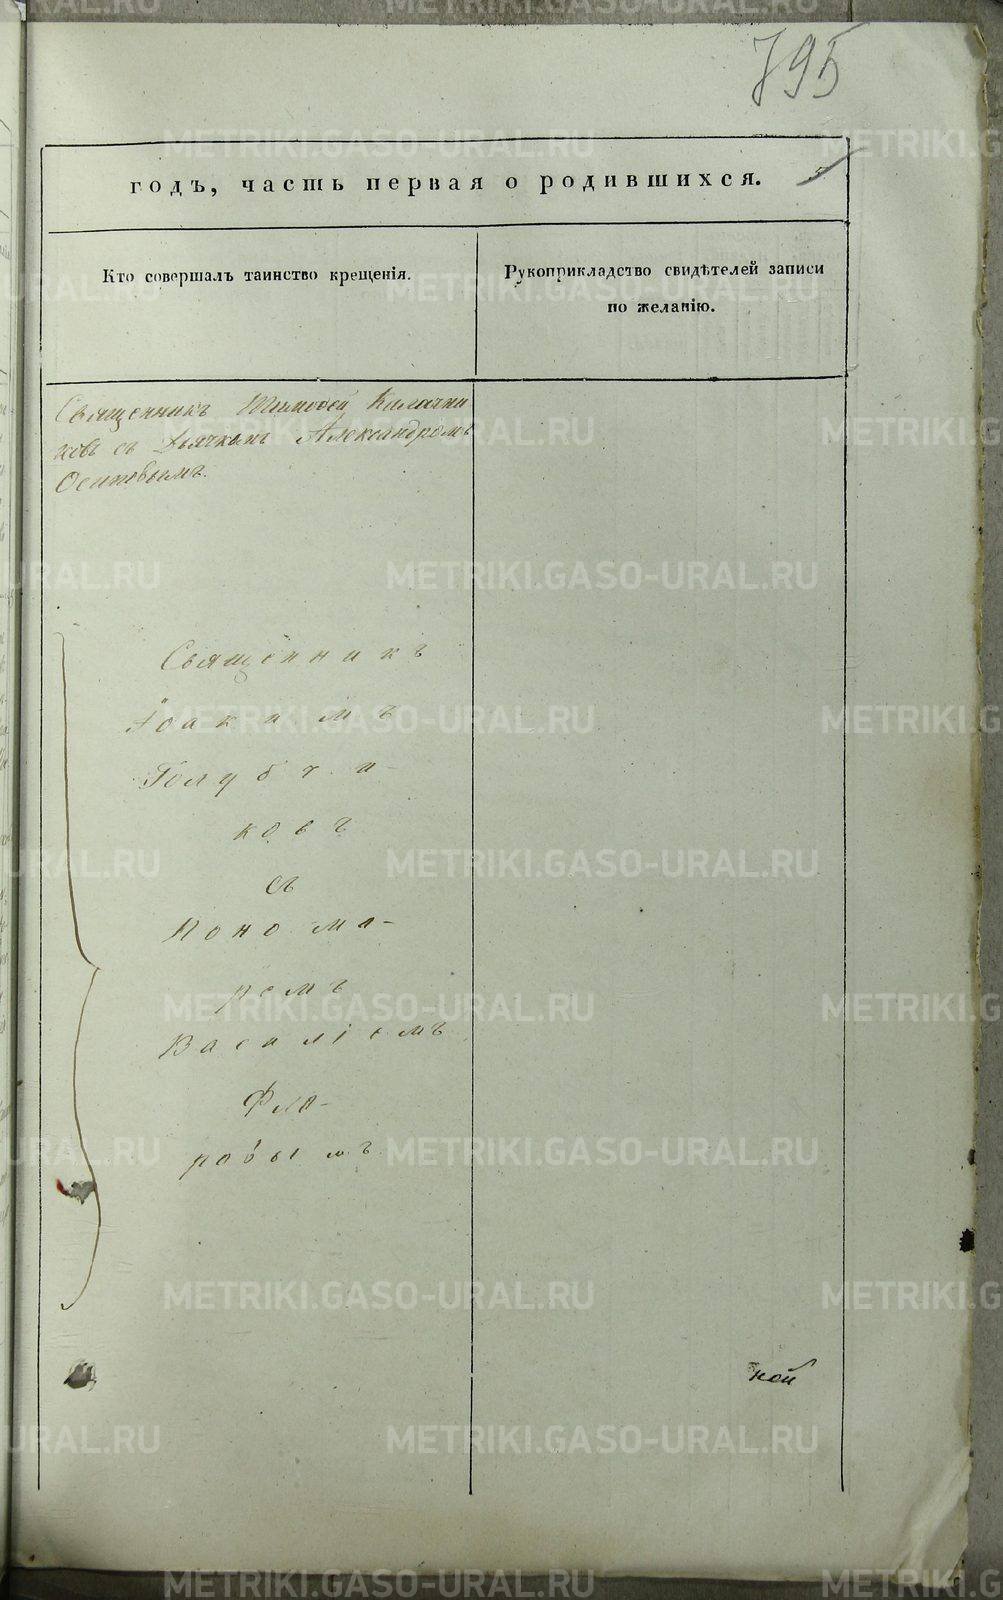 795
годъ, часть первая о родившихся.
Кто совершалъ таинство крещенія.
Рукоприкладство свидѣтелей записи
по желанію.
Священникъ Тимофей Калачни
ковъ съ Дьячкомъ Александромъ
Осиповымъ.
Священникъ
Іоакимъ
Голубчи-
ковъ
съ
Понома-
ремъ
Василіемъ
Фло-
ровымъ
ной
METRIKI.GASO-URAL.RU